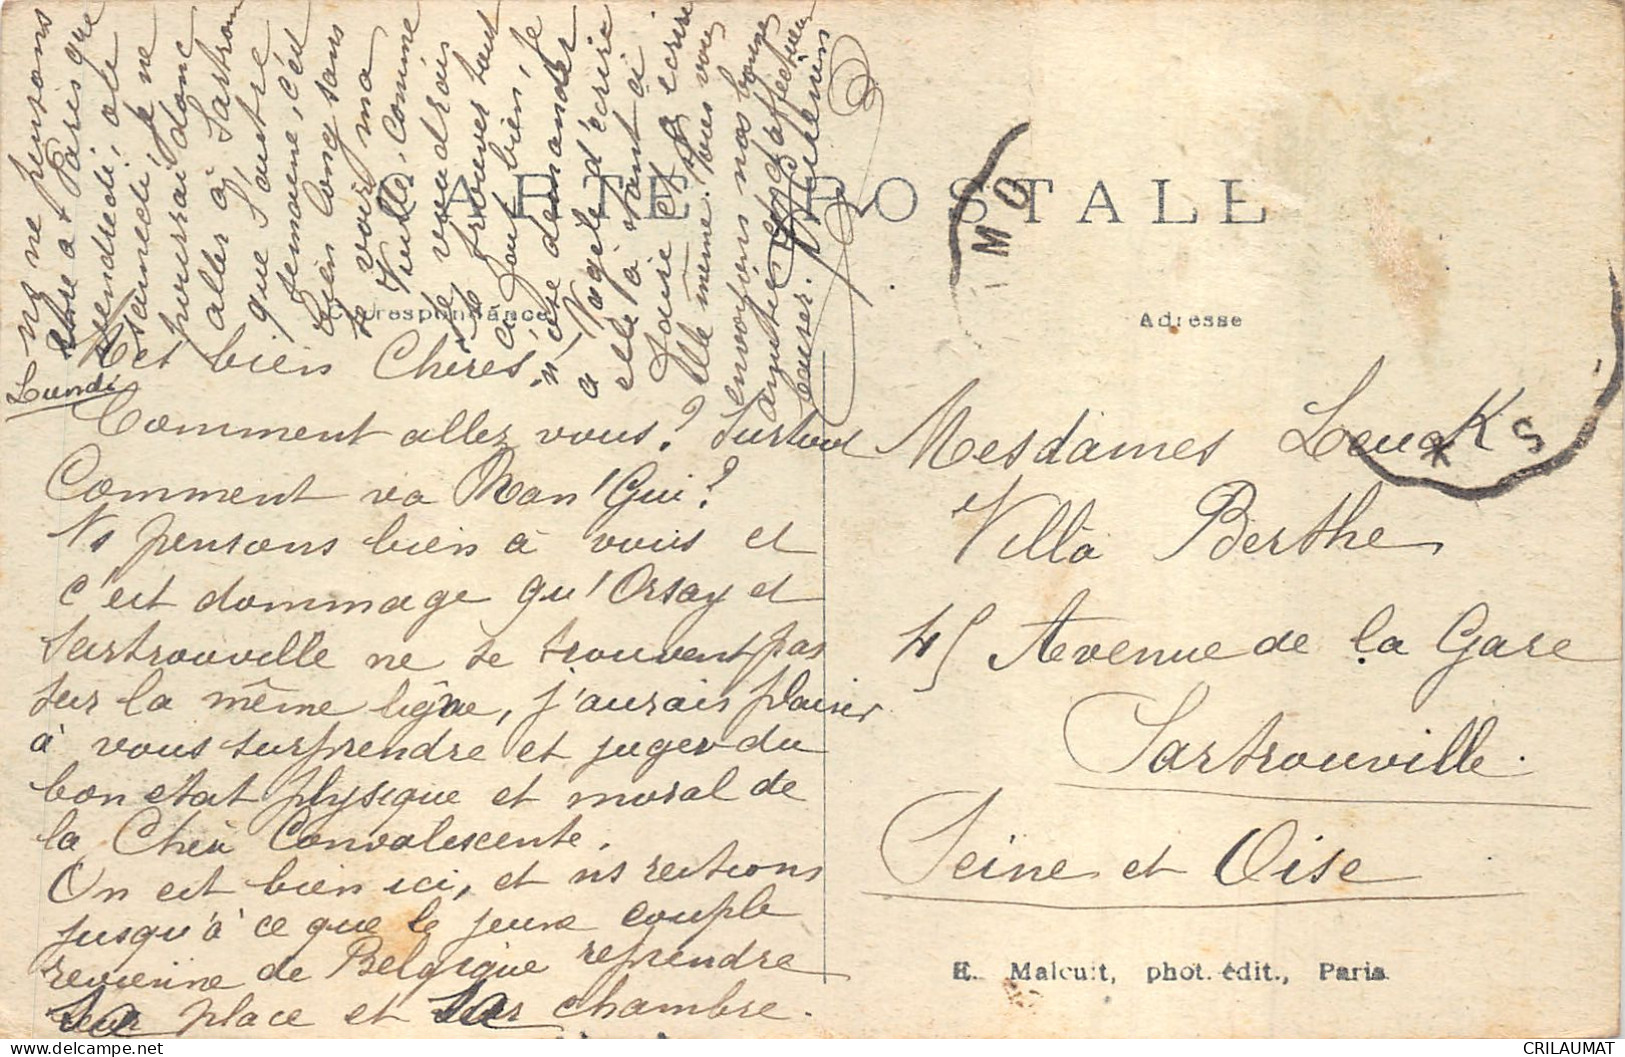 CARTE POSTALE
Correspondance
Adresse
Lundi
et bien Chères,
Comment allez vous? Surtout
Comment va Man'Gui?
Ns pensons bien à vous et
c'est dommage qu'Orsay et
Sartrouville ne se trouvent pas
sur la même ligne, j'aurais plaisir
à vous surprendre et juger du
bon état physique et moral de
la Chère Convalescente.
On est bien ici, et ns restions
jusqu'à ce que le jeune couple
revienne de Belgique reprendre
sa place et sa chambre.
ns ne pensons
être à Paris que
vendredi, ou
samedi, je ne
pourrai donc
aller à Sartrou
que l'autre
semaine, c'est
bien long sans
se voir, ma
Vieille. Comme
je voudrais
te trouver tout
à fait bien, je
n'ose demander
à d'écrire
elle a tant à
faire et à écrire
elle même. Nous vous
envoyons nos bonnes
amitiés et d'affectueux
baisers.
Mesdames Leuck
Villa Berthe
45 Avenue de la Gare
Sartrouville.
Seine et Oise
E. Malcuit, phot. édit., Paris
CRILAUMAT